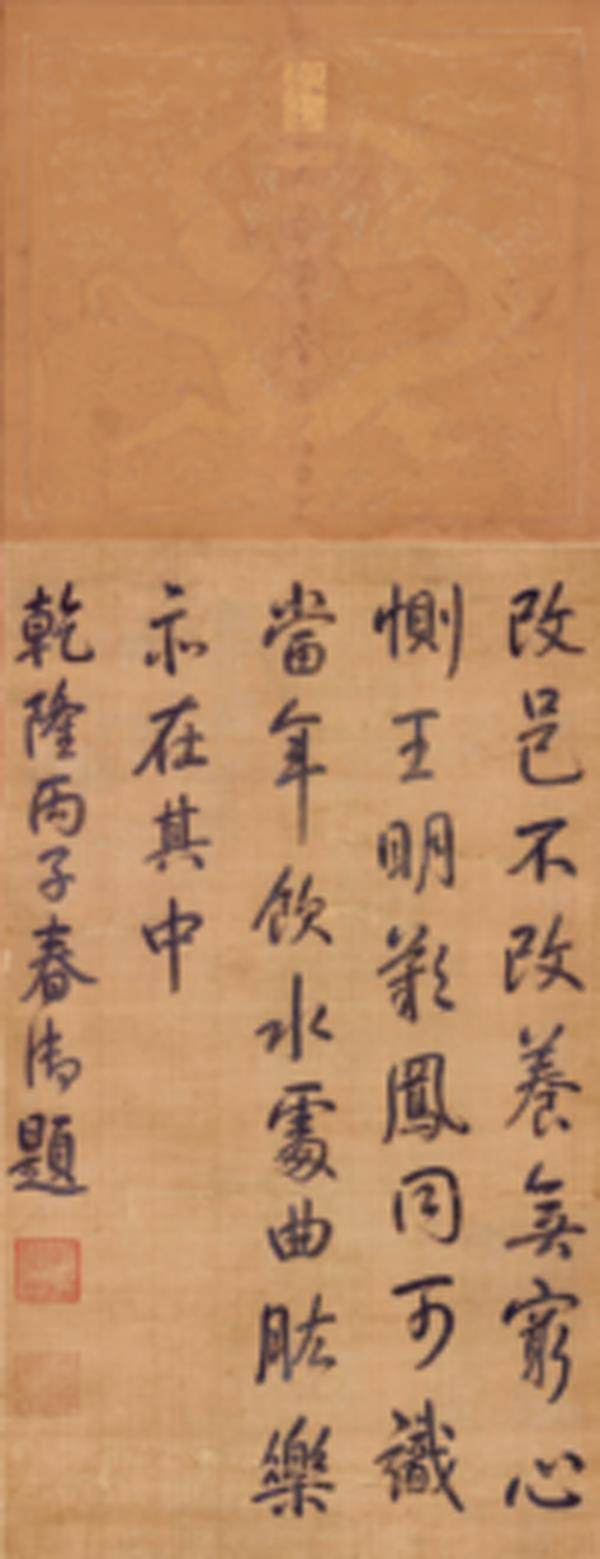 改邑不改養無窮心
惻王明歎鳳同可識
當年飲水處曲肱樂
亦在其中
乾隆丙子春御題